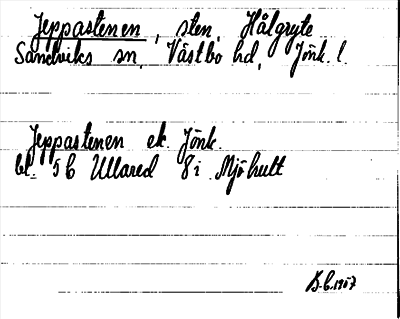 Jeppastenen, sten, Hålgryte
Sandviks sn, Västbo hd, Jönk. l.
Jeppastenen ek. Jönk.
bl. 5C Ullared 8i Mjöhult
B.C. 1957